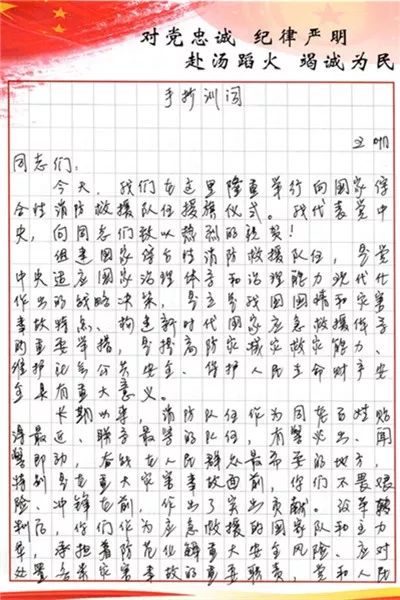 对党忠诚 纪律严明
赴汤蹈火 竭诚为民
手抄训词
同志们：
今天，我们在这里隆重举行向国家综
合性消防救援队伍授旗仪式。我代表党中
央，向同志们致以热烈的祝贺！
组建国家综合性消防救援队伍，是党
中央适应国家治理体系和治理能力现代化
作出的战略决策，是立足我国国情和灾害
事故特点、构建新时代国家应急救援体系
的重要举措，是提高防灾减灾救灾能力、
维护社会公共安全、保护人民生命财产安
全具有重大意义。
长期以来，消防队伍作为同老百姓贴
得最近、联系最紧的队伍，有警必出、闻
警即动，奋战在人民群众最需要的地方，
特别是在重大灾害事故面前，你们不畏艰
险、冲锋在前，作出了突出贡献。改革转
制后，你们作为应急救援的国家队和主力
军，承担着防范化解重大安全风险、应对
处置各类灾害事故的重要职责，党和人民